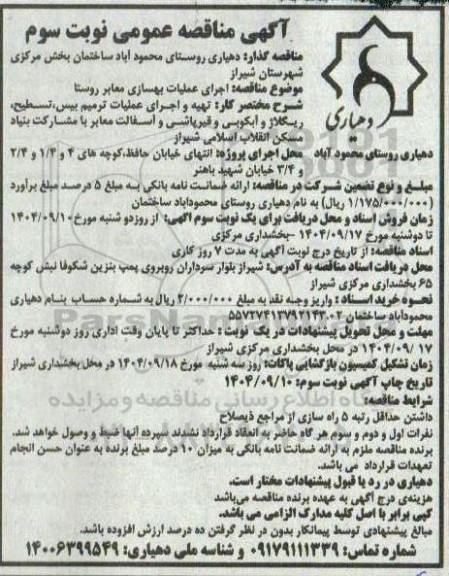 آگهی مناقصه عمومی نوبت سوم
مناقصه گذار: دهیاری روستای محمود آباد ساختمان بخش مرکزی
شهرستان شیراز
موضوع مناقصه: اجرای عملیات بهسازی معابر روستا
شرح مختصر کار: تهیه و اجرای عملیات ترمیم بیس،تسطیح،
ریگلاژ و آبکوبی و قیرپاشی و آسفالت معابر با مشارکت بنیاد
مسکن انقلاب اسلامی شیراز
دهیاری
دهیاری روستای محمود آباد
محل اجرای پروژه: انتهای خیابان حافظ،کوچه های ۴ و ۱/۴ و ۲/۴
و ۳/۴ خیابان شهید باهنر
مبلغ و نوع تضمین شرکت در مناقصه: ارائه ضمانت نامه بانکی به مبلغ ۵ درصد مبلغ برآورد
(۱/۱۷۵/۰۰۰/۰۰۰ ریال) به نام دهیاری روستای محمودآباد ساختمان
زمان فروش اسناد و محل دریافت برای یک نوبت سوم آگهی: از روزدو شنبه مورخ ۱۴۰۴/۰۹/۱۰
تا دوشنبه مورخ ۱۴۰۴/۰۹/۱۷ -بخشداری مرکزی
اسناد مناقصه: از تاریخ درج نوبت آگهی به مدت ۷ روز کاری
محل دریافت اسناد مناقصه به آدرس: شیراز بلوار سرداران روبروی پمپ بنزین شکوفا نبش کوچه
۶۵ بخشداری مرکزی شیراز
نحوه خرید اسناد : واریز وجه نقد به مبلغ ۲/۰۰۰/۰۰۰ ریال به شماره حساب بنام دهیاری
محمودآباد ساختمان
مهلت و محل تحویل پیشنهادات در یک نوبت : حداکثر تا پایان وقت اداری روز دوشنبه مورخ
۱۴۰۴/۰۹/۱۷ در محل بخشداری مرکزی شیراز
زمان تشکیل کمیسیون بازگشایی پاکات: روز سه شنبه مورخ ۱۴۰۴/۰۹/۱۸ در محل بخشداری شیراز
تاریخ چاپ آگهی نوبت سوم: ۱۴۰۴/۰۹/۱۰
شرایط مناقصه:
داشتن حداقل رتبه ۵ راه سازی از مراجع ذیصلاح
نفرات اول و دوم و سوم هر گاه حاضر به انعقاد قرارداد نشدند سپرده آنها ضبط و وصول خواهد شد.
برنده مناقصه ملزم به ارائه ضمانت نامه بانکی به میزان ۱۰ درصد مبلغ برنده به عنوان حسن انجام
تعهدات قرارداد می باشد.
دهیاری در رد یا قبول پیشنهادات مختار است.
هزینه‌ی درج آگهی به عهده برنده مناقصه می‌باشد
کپی برابر با اصل کلیه مدارک الزامی می باشد.
مبالغ پیشنهادی توسط پیمانکار بدون در نظر گرفتن ده درصد ارزش افزوده باشد.
شماره تماس: ۰۹۱۷۹۱۱۱۳۳۹ و شناسه ملی دهیاری: ۱۴۰۰۶۳۹۹۵۴۹